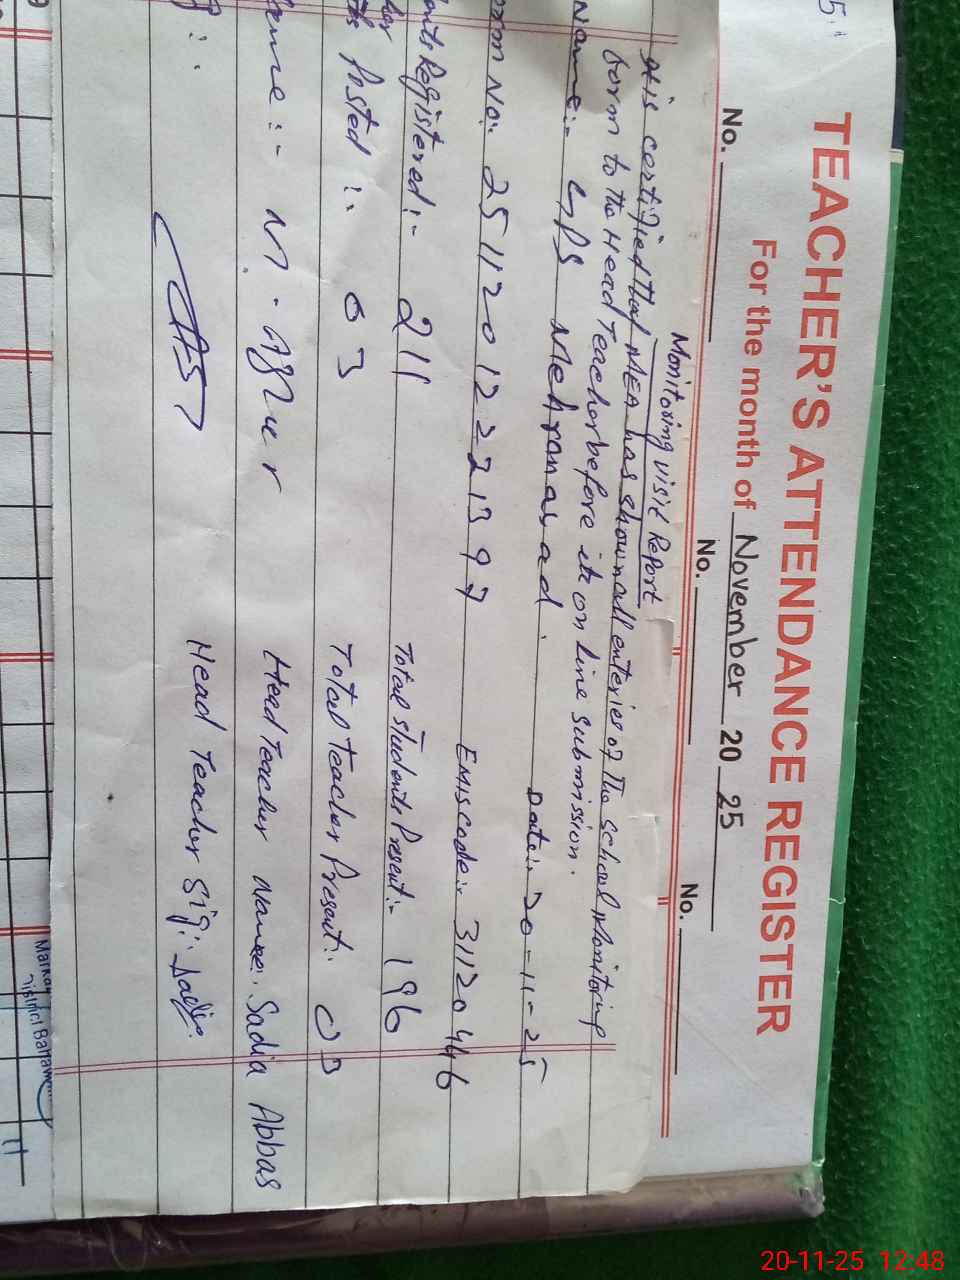 TEACHER'S ATTENDANCE REGISTER
For the month of November 20 25
No. No. No.
Monitoring visit Report
It is certified that MEA has shown all enteries of The school monitoring
form to the Head Teacher before its on line submission.
Name:- GPS Mehranabad. Date:- 20-11-25
No:- EMIS code:- 31120446
Registered:- 211 Total students Present:- 196
Posted :- 03 Total teacher Present:- 03
Head Teacher Name:- Sadia Abbas
Head Teacher Sig:-
20-11-25 12:48